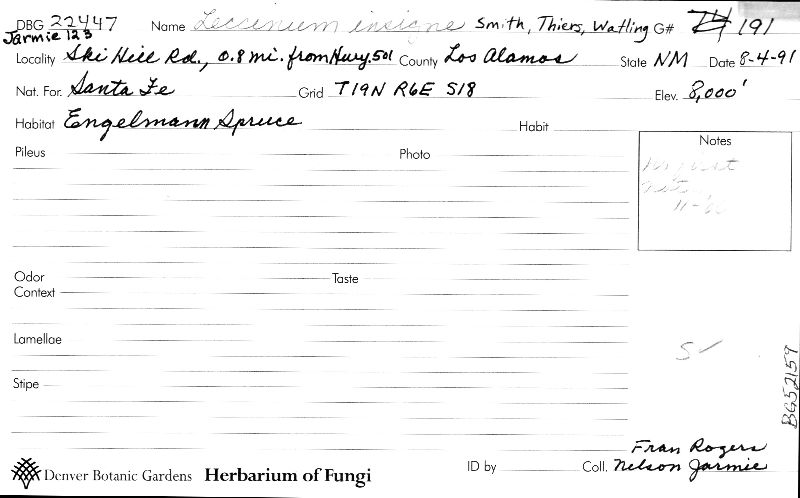 DBG 22447 Name Leccinum insigne Smith, Thiers, Watling G# 191
Jarmie 123
Locality Ski Hill Rd., 0.8 mi. from Hwy. 501 County Los Alamos State NM Date 8-4-91
Nat. For. Santa Fe Grid T19N R6E S18 Elev. 8,000'
Habitat Engelmann Spruce Habit
Pileus Photo Notes
Odor Taste
Context
Lamellae
Stipe
BG52159
Fran Rogers
Denver Botanic Gardens Herbarium of Fungi ID by Coll. Nelson Jarmie